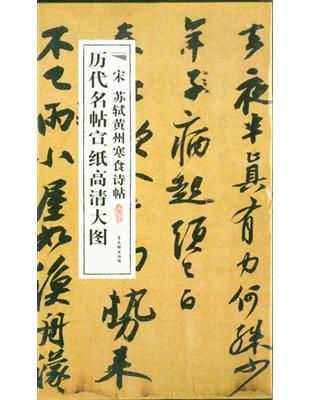 宋 苏轼黄州寒食诗帖
历代名帖宣纸高清大图
去夜半真有力何殊少
年子病起頭已白
春
勢来
不已雨小屋如漁舟濛